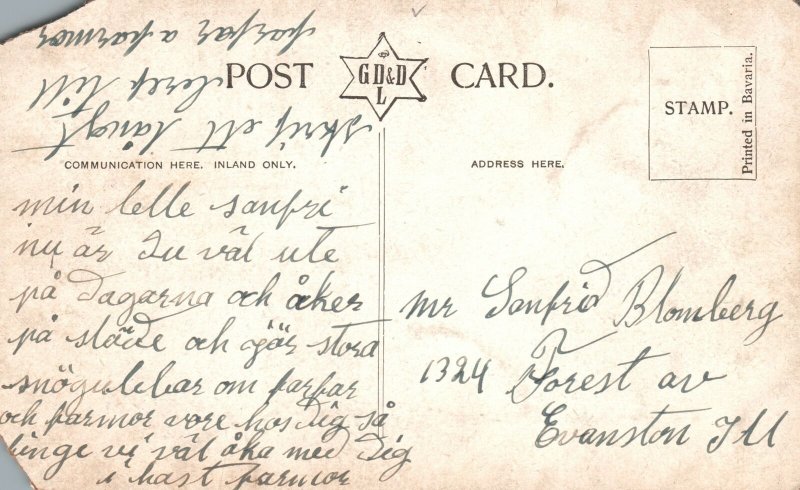 POST CARD.
GD&D
L
STAMP.
Printed in Bavaria.
COMMUNICATION HERE. INLAND ONLY.
ADDRESS HERE.
min lelle sanfri
nu är Du väl ute
på dagarna och åker
på släde och gör stora
snögubbar om farfar
och farmor vore hos Dig så
finge vi väl åka med Dig
i hast farmor
skrif ett långt
bref till
farfar a farmor
Mr Sanfrid Blomberg
1324 Forest av
Evanston Ill